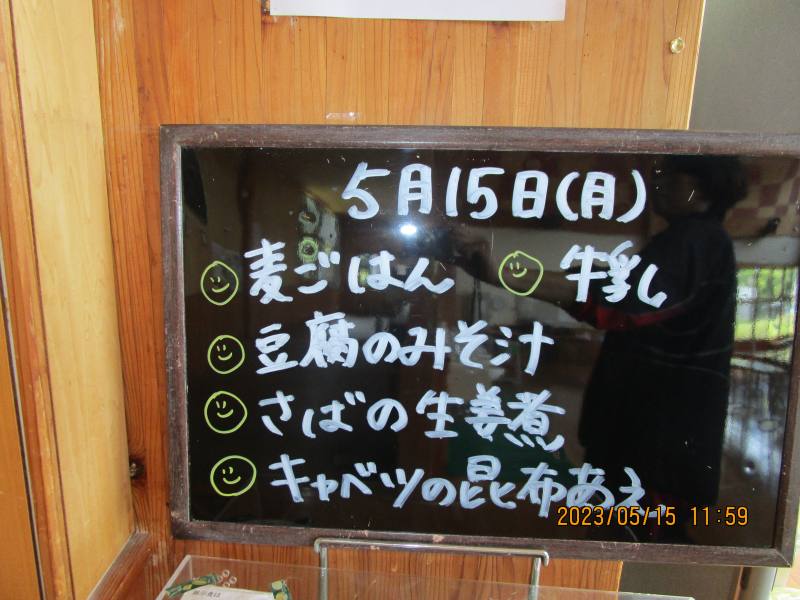 5月15日(月)
麦ごはん 牛乳
豆腐のみそ汁
さばの生姜煮
キャベツの昆布あえ
2023/05/15 11:59